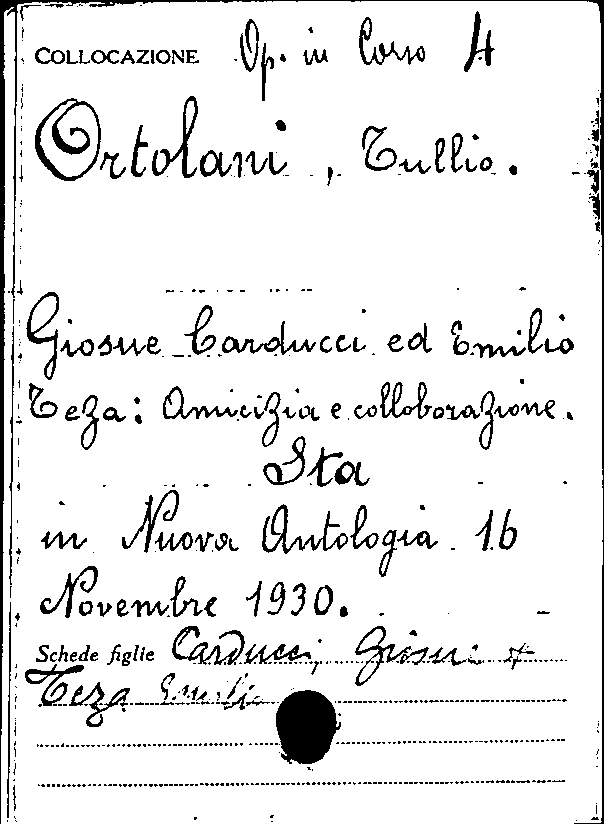 COLLOCAZIONE Op. in Corso 4
Ortolani, Tullio.
Giosue Carducci ed Emilio
Teza: Amicizia e colloborazione.
Sta
in Nuova Antologia 16
Novembre 1930.
Schede figlie Carducci, Giosue +
Teza Emilio